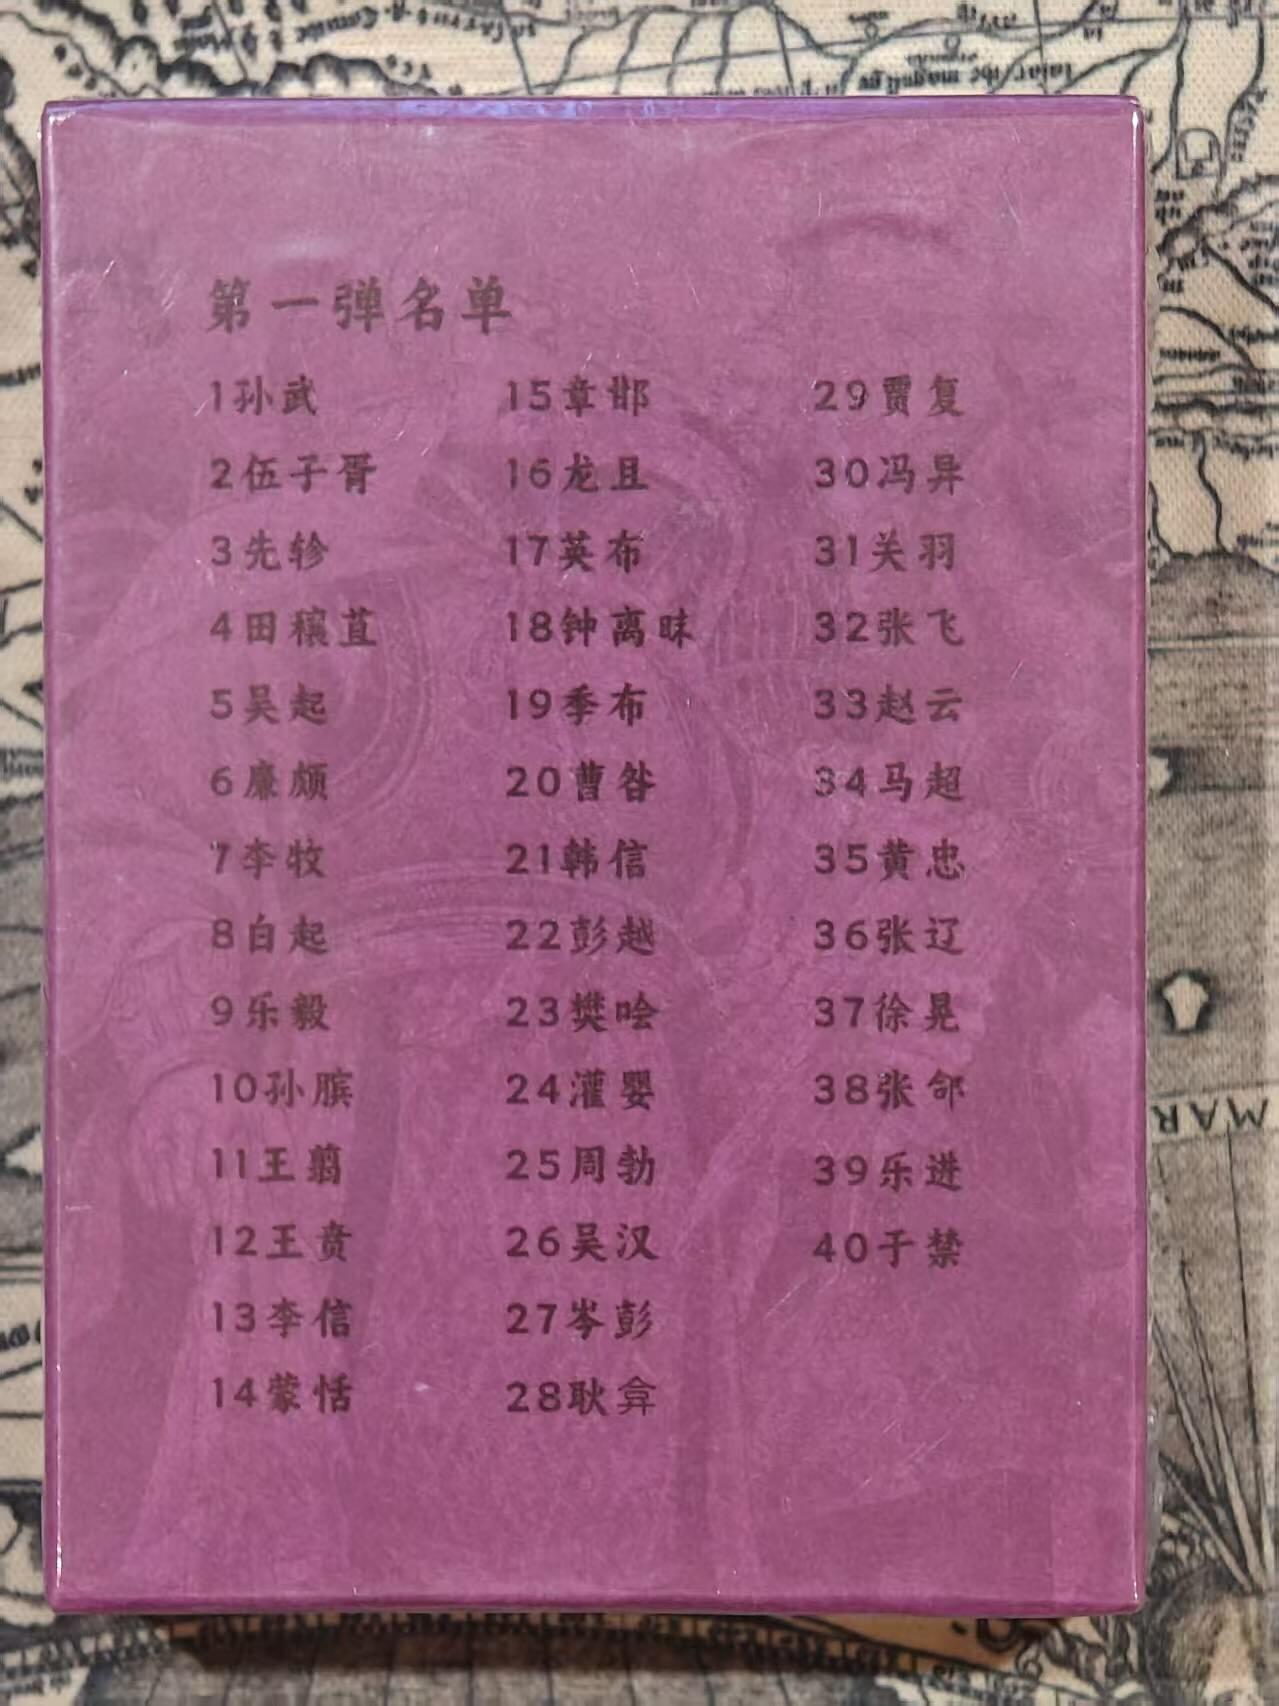 第一弹名单
1孙武
2伍子胥
3先轸
4田穰苴
5吴起
6廉颇
7李牧
8白起
9乐毅
10孙膑
11王翦
12王贲
13李信
14蒙恬
15章邯
16龙且
17英布
18钟离昧
19季布
20曹咎
21韩信
22彭越
23樊哙
24灌婴
25周勃
26吴汉
27岑彭
28耿弇
29贾复
30冯异
31关羽
32张飞
33赵云
34马超
35黄忠
36张辽
37徐晃
38张郃
39乐进
40于禁
MAR